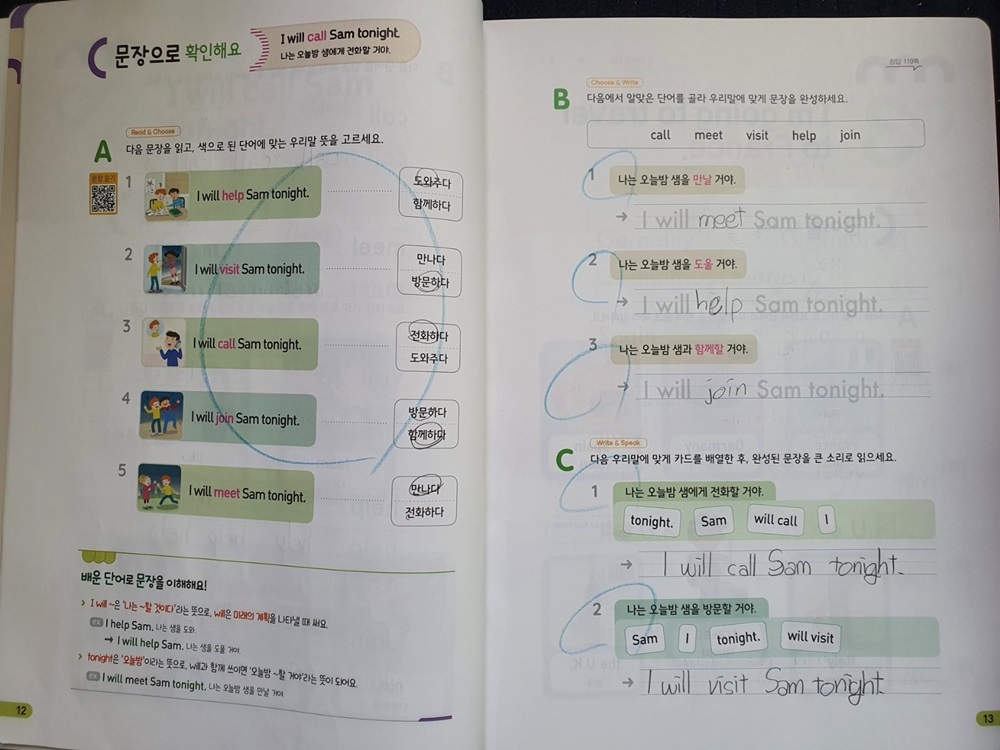 문장으로 확인해요
I will call Sam tonight.
나는 오늘밤 샘에게 전화할 거야.
Read & Choose
A 다음 문장을 읽고, 색으로 된 단어에 맞는 우리말 뜻을 고르세요.
문장 듣기
1 I will help Sam tonight.
도와주다
함께하다
2 I will visit Sam tonight.
만나다
방문하다
3 I will call Sam tonight.
전화하다
도와주다
4 I will join Sam tonight.
방문하다
함께하다
5 I will meet Sam tonight.
만나다
전화하다
배운 단어로 문장을 이해해요!
I will ~은 '나는 ~할 것이다'라는 뜻으로, will은 미래의 계획을 나타낼 때 써요.
EX I help Sam. 나는 샘을 도와.
→ I will help Sam. 나는 샘을 도울 거야.
tonight은 '오늘밤'이라는 뜻으로, will과 함께 쓰이면 '오늘밤 ~할 거야'라는 뜻이 되어요.
EX I will meet Sam tonight. 나는 오늘밤 샘을 만날 거야.
12
정답 110쪽
Choose & Write
B 다음에서 알맞은 단어를 골라 우리말에 맞게 문장을 완성하세요.
call meet visit help join
1 나는 오늘밤 샘을 만날 거야.
→ I will meet Sam tonight.
2 나는 오늘밤 샘을 도울 거야.
→ I will help Sam tonight.
3 나는 오늘밤 샘과 함께할 거야.
→ I will join Sam tonight.
Write & Speak
C 다음 우리말에 맞게 카드를 배열한 후, 완성된 문장을 큰 소리로 읽으세요.
1 나는 오늘밤 샘에게 전화할 거야.
tonight. Sam will call I
→ I will call Sam tonight.
2 나는 오늘밤 샘을 방문할 거야.
Sam I tonight. will visit
→ I will visit Sam tonight
13